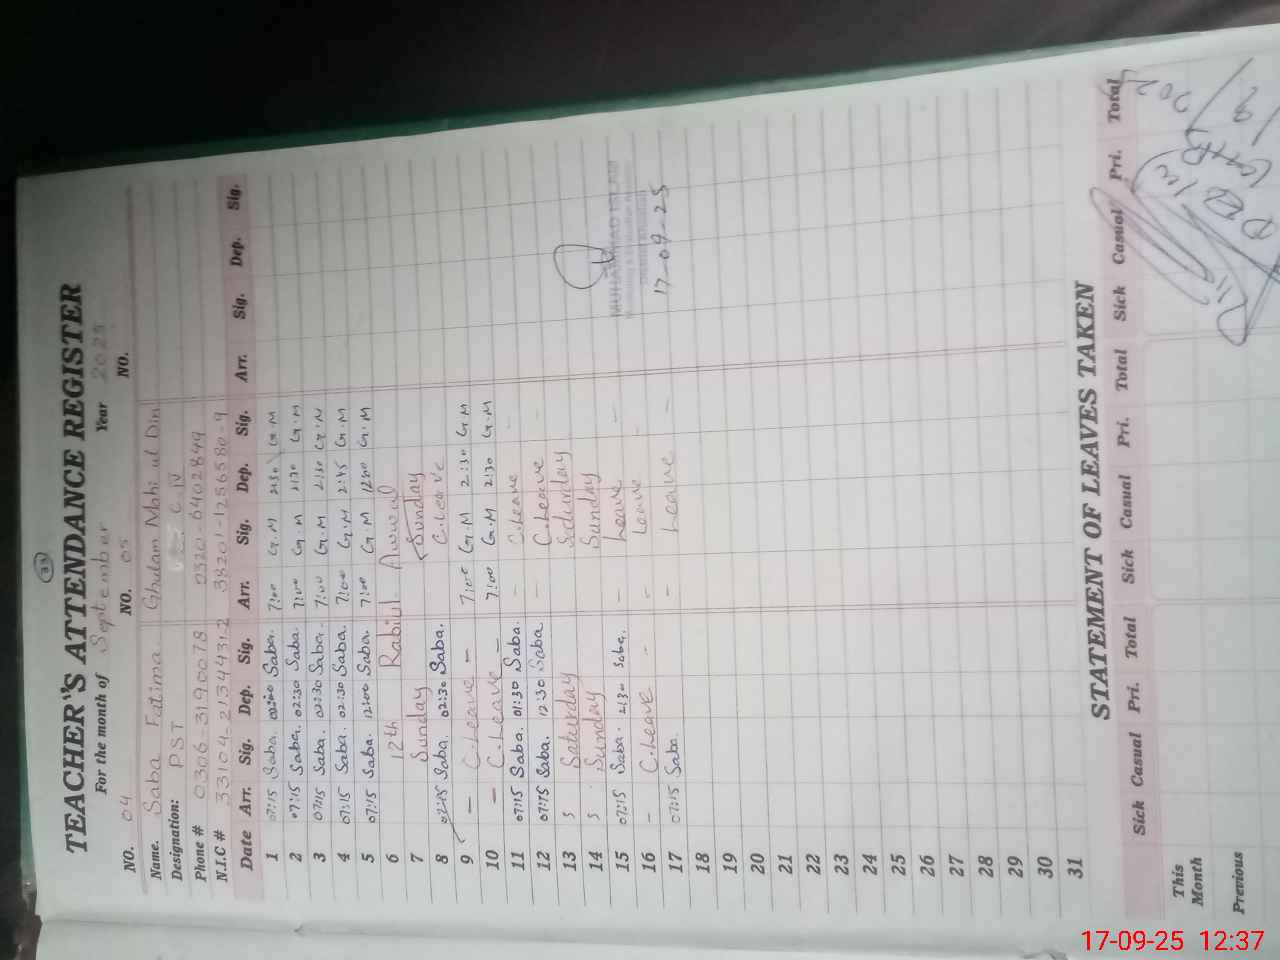 33
TEACHER'S ATTENDANCE REGISTER
For the month of September Year 2025
NO. 04 NO. 05 NO.
Name. Saba Fatima. Ghulam Mohi ul Din
Designation: PST C.IV
Phone # 0306-3190078 0320-6402844
N.I.C # 33104-2134431-2 38201-1256580-9
Date Arr. Sig. Dep. Sig. Arr. Sig. Dep. Sig. Arr. Sig. Dep. Sig.
1 07:15 Saba. 02:00 Saba. 7:00 G.M 2:30 G.M
2 07:15 Saba. 02:30 Saba. 7:00 G.M 2:30 G.M
3 07:15 Saba. 02:30 Saba. 7:00 G.M 2:30 G.M
4 07:15 Saba. 02:30 Saba. 7:00 G.M 2:45 G.M
5 07:15 Saba. 12:00 Saba. 7:00 G.M 12:00 G.M
6 12th Rabiul Awwal
7 Sunday Sunday
8 07:15 Saba. 02:30 Saba. C.Leave
9 - C.Leave - 7:00 G.M 2:30 G.M
10 - C.Leave - 7:00 G.M 2:30 G.M
11 07:15 Saba. 01:30 Saba. - C.Leave -
12 07:15 Saba. 12:30 Saba - C.Leave -
13 S Saturday Saturday
14 S Sunday Sunday
15 07:15 Saba. 2:30 Saba. - Leave -
16 - C.Leave - - Leave -
17 07:15 Saba. - Leave -
18
19
20
21
22
23
24
25
26
27
28
29
30
31
MUHAMMAD
17-09-25
STATEMENT OF LEAVES TAKEN
Sick Casual Pri. Total Sick Casual Pri. Total Sick Casual Pri. Total
This Month
Previous
17-09-25 12:37